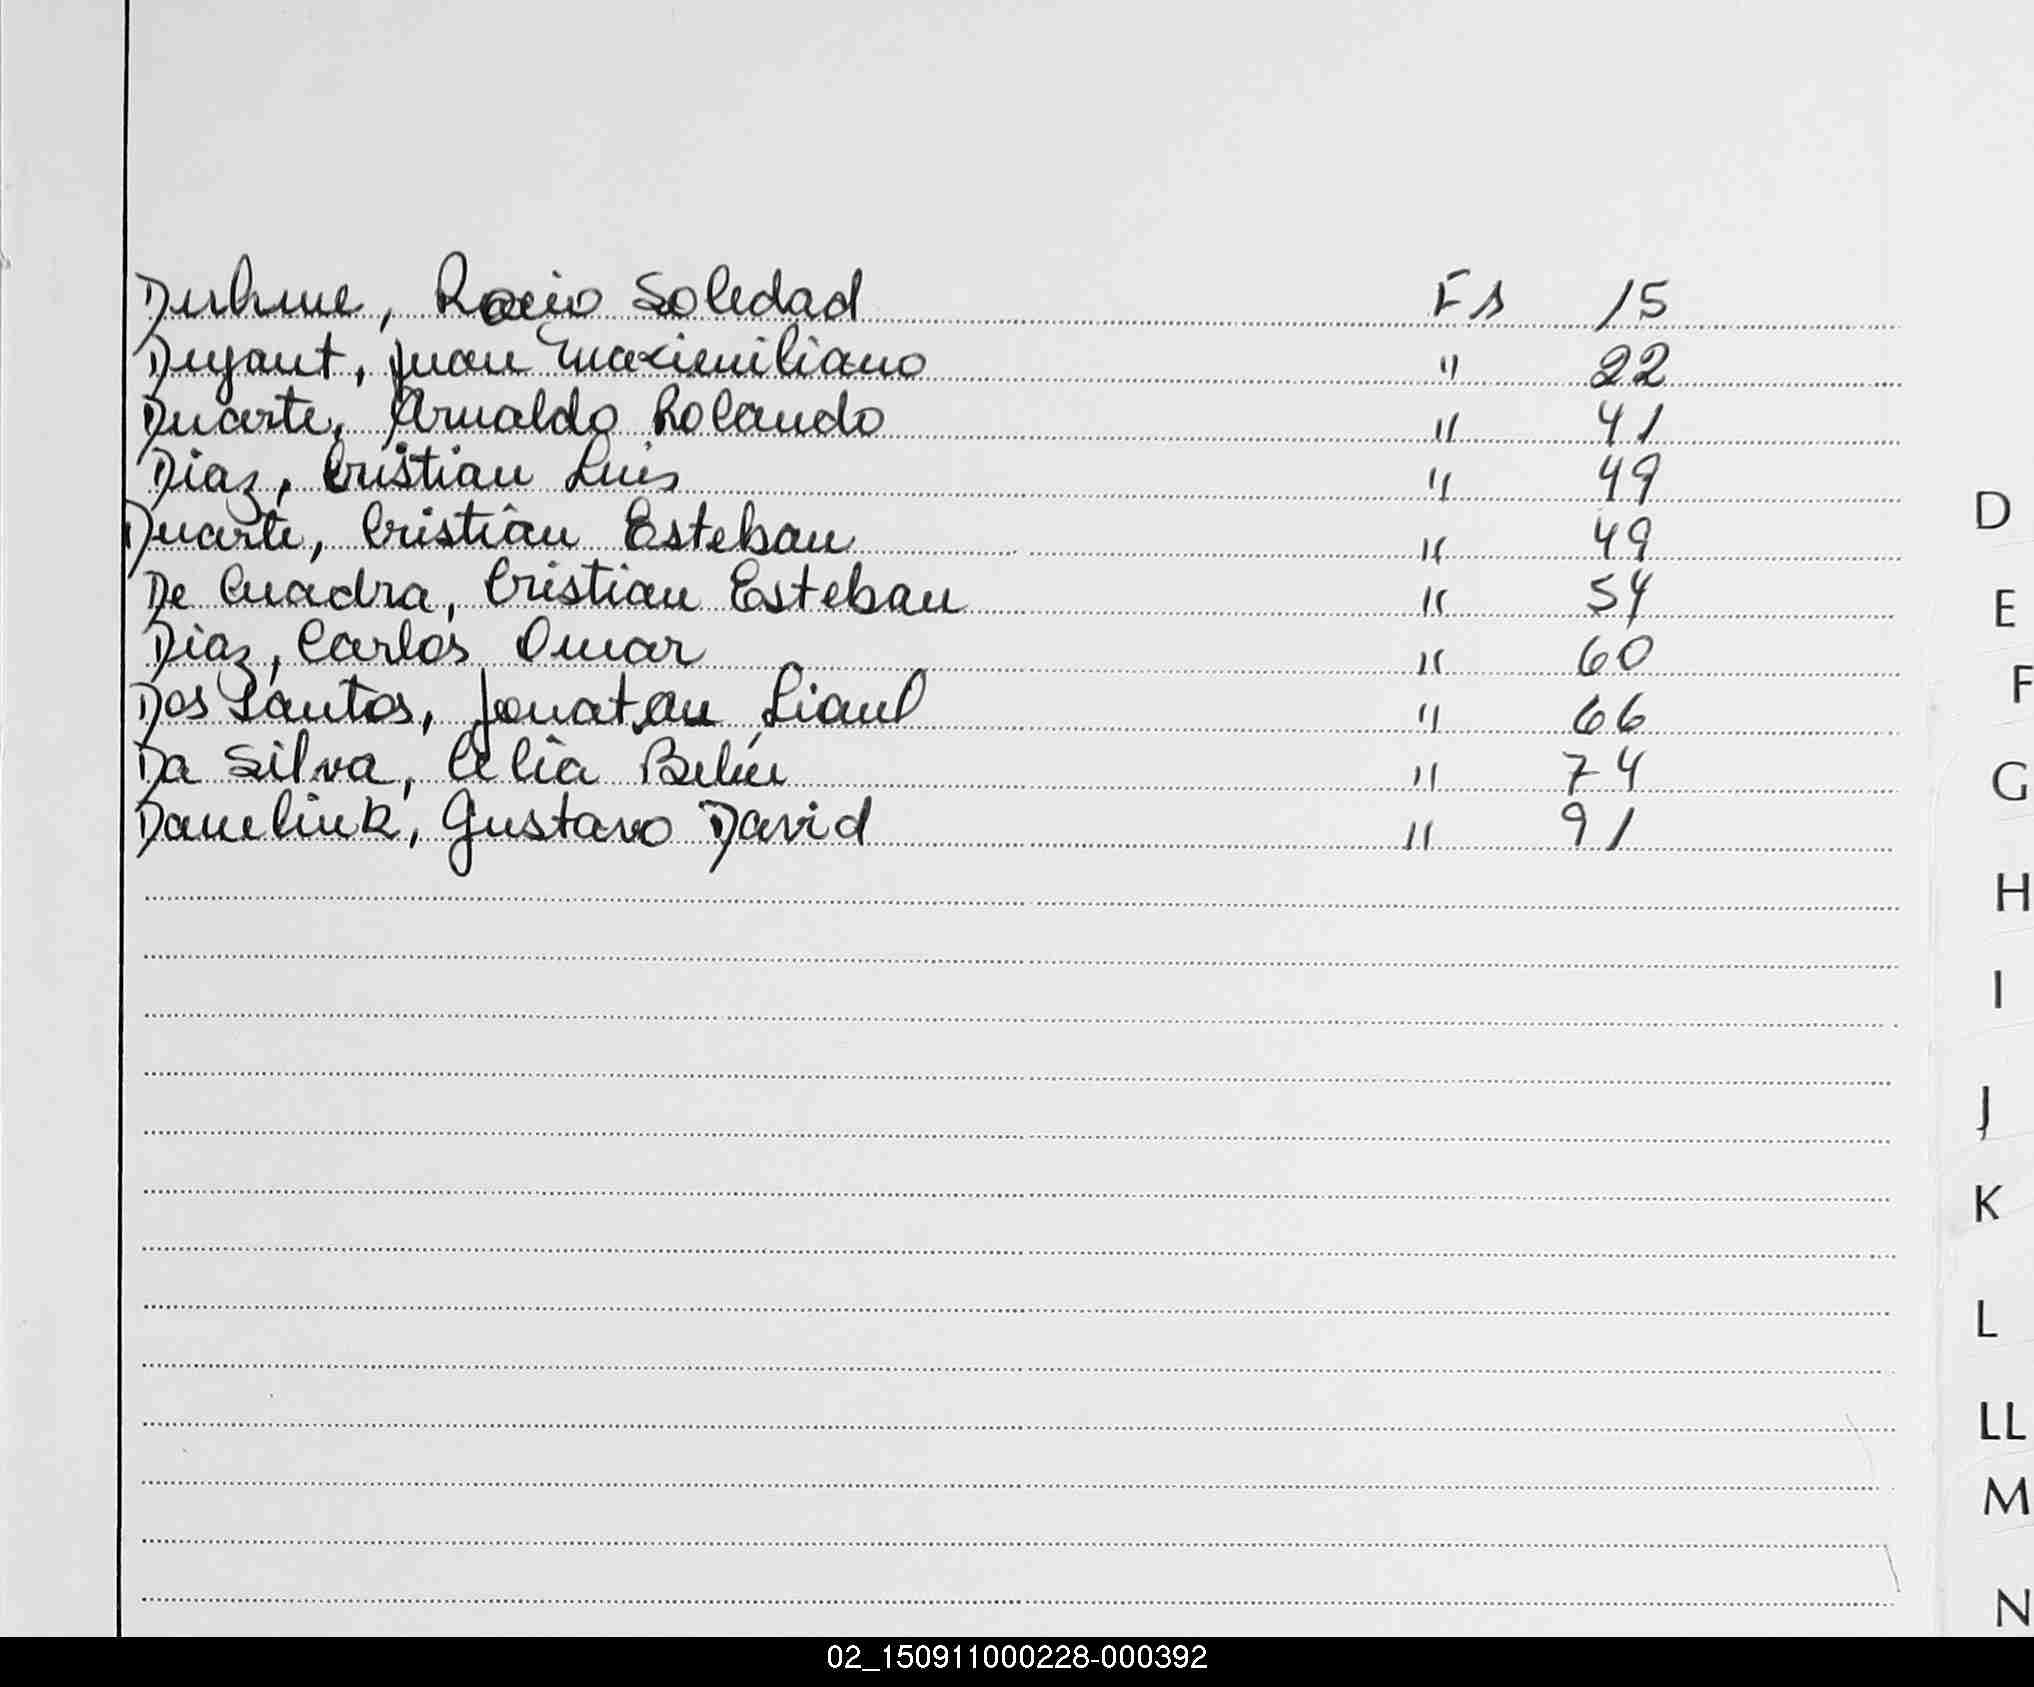 Duhme, Rocio Soledad Fs 15
Dujaut, Juan Maximiliano " 22
Duarte, Arnaldo Rolando " 41
Diaz, Cristian Luis " 49
Duarte, Cristian Esteban " 49
De Cuadra, Cristian Esteban " 54
Diaz, Carlos Omar " 60
Dos Santos, Jonatan " 66
Da Silva, Celia Belén " 74
Daneliuk, Gustavo David " 91
D
E
F
G
H
I
J
K
L
LL
M
N
02_150911000228-000392